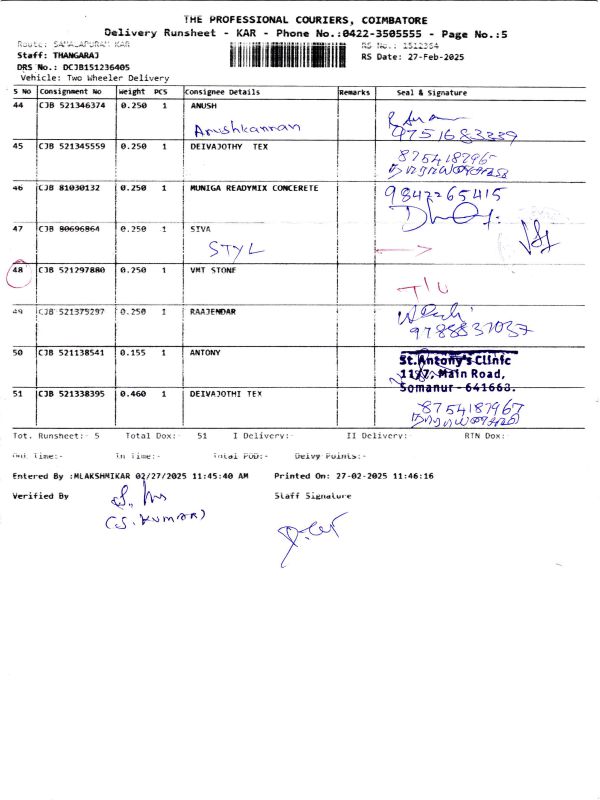 THE PROFESSIONAL COURIERS, COIMBATORE
Delivery Runsheet - KAR - Phone No.:0422-3505555 - Page No.:5
Route: SAMALAPURAM KAR RS No.: 1512364
Staff: THANGARAJ RS Date: 27-Feb-2025
DRS No.: DCJB151236405
Vehicle: Two Wheeler Delivery
S No Consignment No Weight PCS Consignee Details Remarks Seal & Signature
44 CJB 521346374 0.250 1 ANUSH
Anushkannan 9751683339
45 CJB 521345559 0.250 1 DEIVAJOTHY TEX 8754187967
46 CJB 81030132 0.250 1 MUNIGA READYMIX CONCERETE 9842265415
47 CJB 80696864 0.250 1 SIVA
STYL
48 CJB 521297880 0.250 1 VMT STONE
49 CJB 521375297 0.250 1 RAAJENDAR
9788837037
50 CJB 521138541 0.155 1 ANTONY St.Antony's Clinic
11/7, Main Road,
Somanur - 641668.
51 CJB 521338395 0.460 1 DEIVAJOTHI TEX 8754187967
Tot. Runsheet:- 5 Total Dox:- 51 I Delivery:- II Delivery:- RTN Dox:-
Out Time:- In Time:- Total POD:- Delvy Points:-
Entered By :MLAKSHMIKAR 02/27/2025 11:45:40 AM Printed On: 27-02-2025 11:46:16
Verified By Staff Signature
(S. KUMAR)